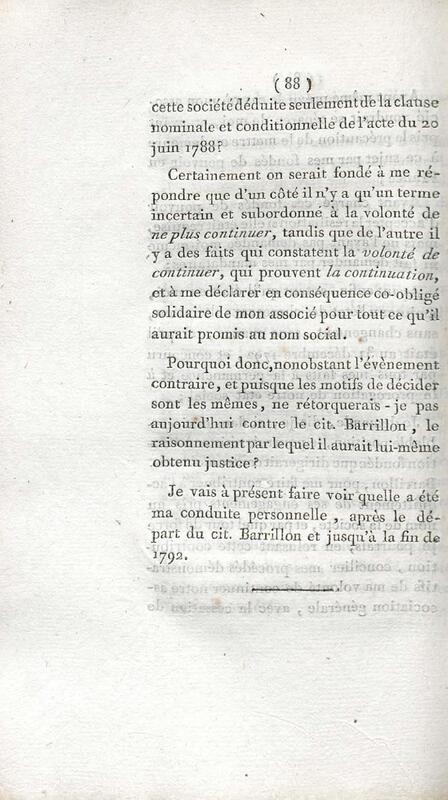 ( 88 )
cette société déduite seulement de la clause
nominale et conditionnelle de l'acte du 20
juin 1788?
Certainement on serait fondé à me ré-
pondre que d'un côté il n'y a qu'un terme
incertain et subordonné à la volonté de
ne plus continuer, tandis que de l'autre il
y a des faits qui constatent la volonté de
continuer, qui prouvent la continuation,
et à me déclarer en conséquence co-obligé
solidaire de mon associé pour tout ce qu'il
aurait promis au nom social.
Pourquoi donc, nonobstant l'évènement
contraire, et puisque les motifs de décider
sont les mêmes, ne rétorquerais-je pas
aujourd'hui contre le cit. Barrillon, le
raisonnement par lequel il aurait lui-même
obtenu justice?
Je vais à présent faire voir quelle a été
ma conduite personnelle, après le dé-
part du cit. Barrillon et jusqu'à la fin de
1792.